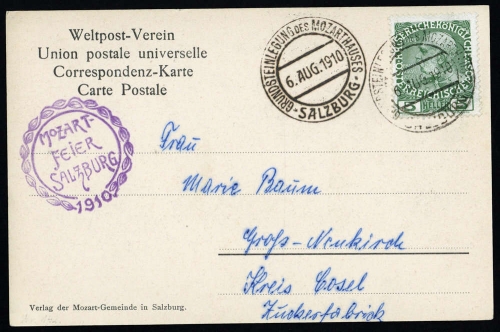 Weltpost-Verein
Union postale universelle
Correspondenz-Karte
Carte Postale
GRUNDSTEINLEGUNG DES MOZARTHAUSES
6. AUG. 1910
SALZBURG
MOZART-
FEIER
SALZBURG
1910
Frau
Marie Baum
Groß-Neukirch
Kreis Cosel
Zuckerfabrick
Verlag der Mozart-Gemeinde in Salzburg.